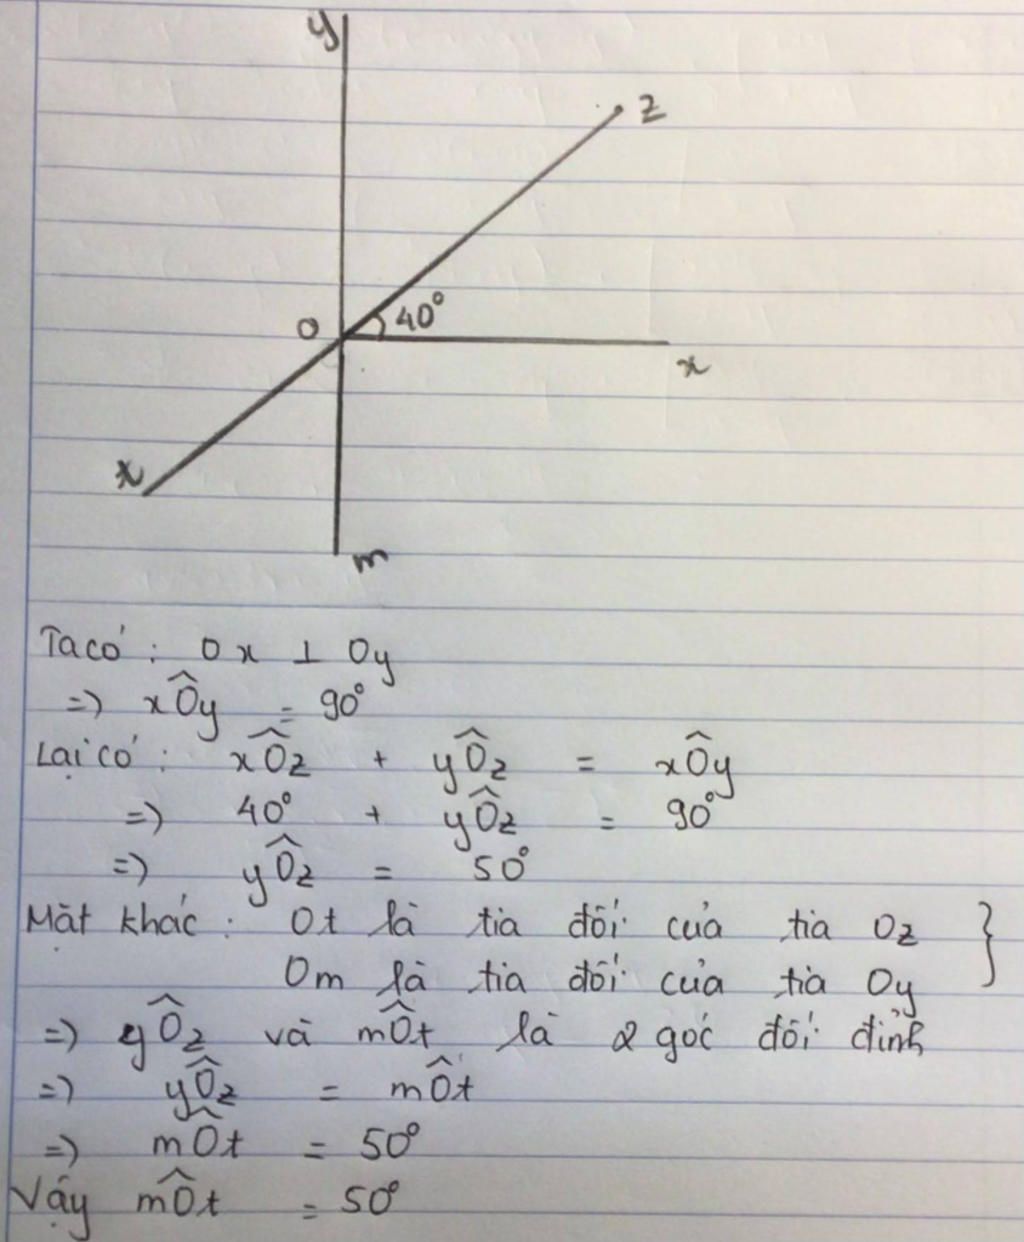 y
z
O
40°
x
t
m
Ta có : Ox ⊥ Oy
=) xÔy = 90°
Lại có : xÔz + yÔz = xÔy
=) 40° + yÔz = 90°
=) yÔz = 50°
Mặt khác : Ot là tia đối của tia Oz }
Om là tia đối của tia Oy
=) yÔz và mÔt là 2 góc đối đỉnh
=) yÔz = mÔt
=) mÔt = 50°
Vậy mÔt = 50°